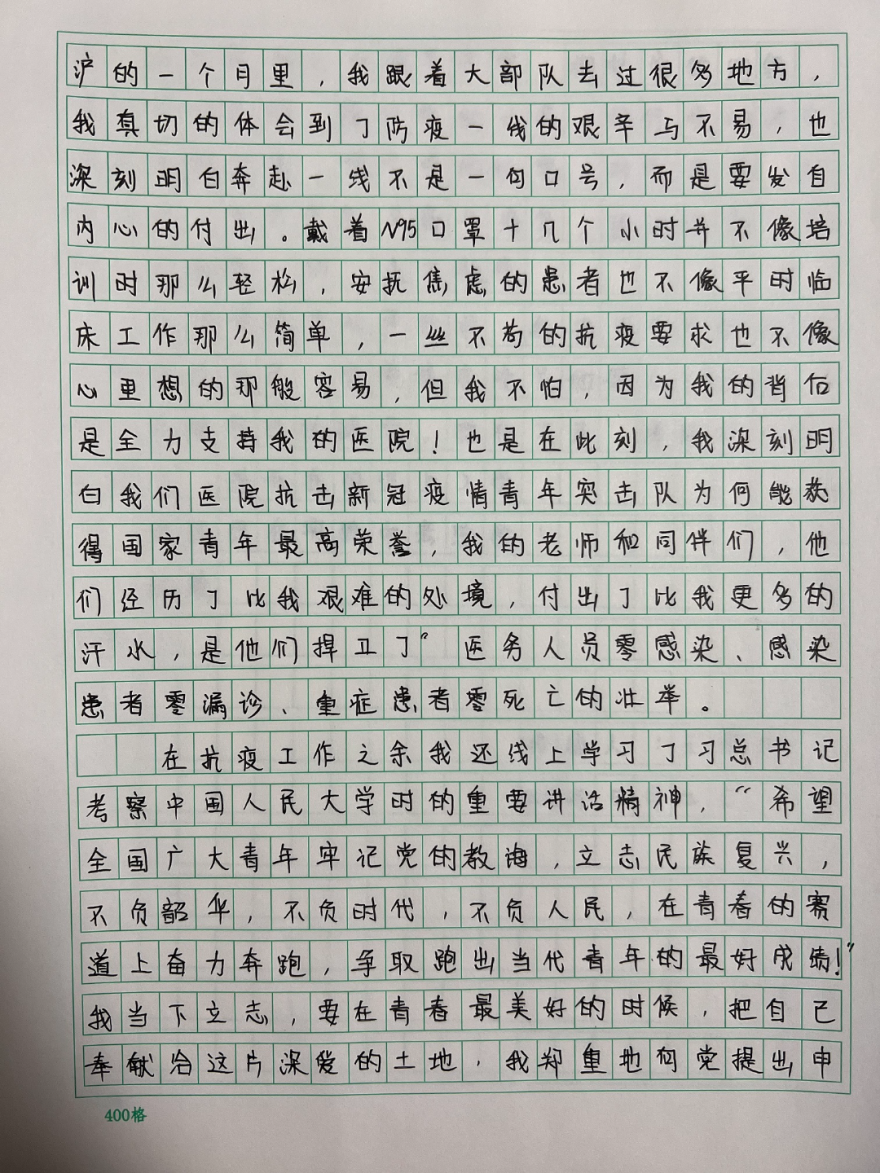 沪的一个月里，我跟着大部队去过很多地方，
我真切的体会到了防疫一线的艰辛与不易，也
深刻明白奔赴一线不是一句口号，而是要发自
内心的付出。戴着N95口罩十几个小时并不像培
训时那么轻松，安抚焦虑的患者也不像平时临
床工作那么简单，一丝不苟的抗疫要求也不像
心里想的那般容易，但我不怕，因为我的背后
是全力支持我的医院！也是在此刻，我深刻明
白我们医院抗击新冠疫情青年突击队为何能获
得国家青年最高荣誉，我的老师和同伴们，他
们经历了比我艰难的处境，付出了比我更多的
汗水，是他们捍卫了“医务人员零感染、感染
患者零漏诊、重症患者零死亡的壮举。
在抗疫工作之余我还线上学习了习总书记
考察中国人民大学时的重要讲话精神，“希望
全国广大青年牢记党的教诲，立志民族复兴，
不负韶华，不负时代，不负人民，在青春的赛
道上奋力奔跑，争取跑出当代青年的最好成绩！”
我当下立志，要在青春最美好的时候，把自己
奉献给这片深爱的土地，我郑重地向党提出申
400格